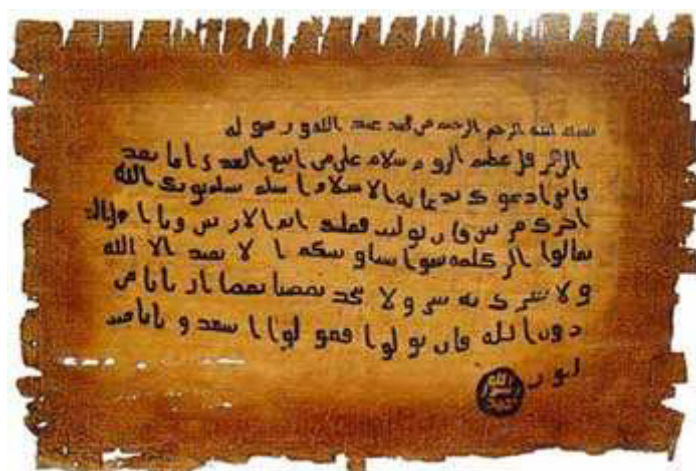 بسم الله الرحمن الرحيم من محمد عبد الله و رسوله
الى هرقل عظيم الروم سلام على من اتبع الهدى اما بعد
فانى ادعوك بدعاية الاسلام اسلم تسلم يوتك الله
اجرك مرتين فان توليت فعليك اثم الاريسين ويا اهل الكتاب
تعالوا الى كلمه سوا بيننا وبينكم الا نعبد الا الله
ولا نشرك به شيا ولا يتخذ بعضنا بعضا اربابا من
دون الله فان تولوا فقولوا اشهدو بانا مس
لمون
الله
رسول
محمد